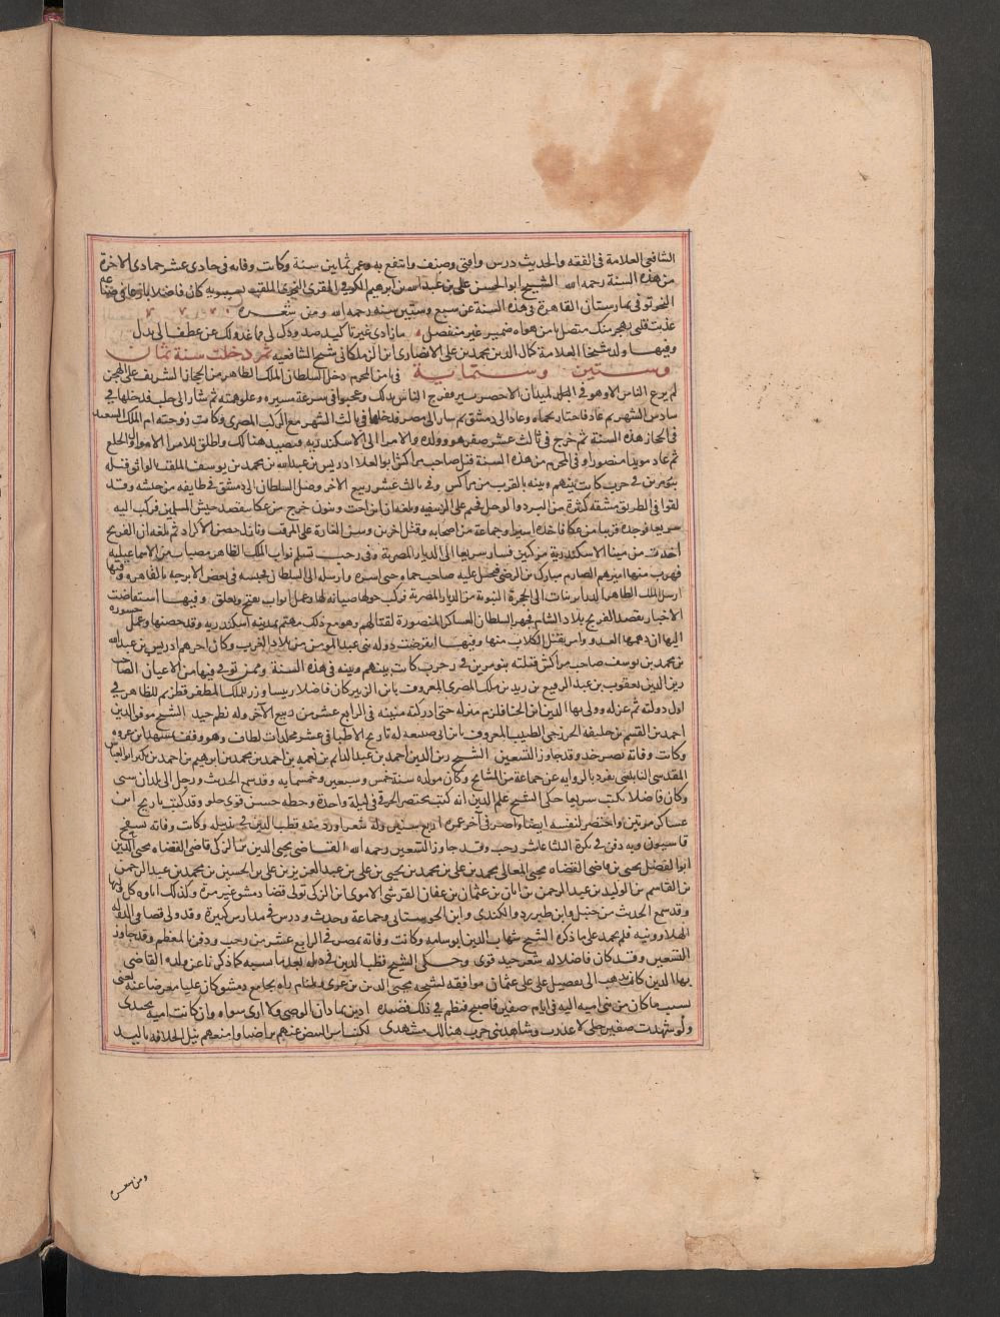 الشافعي العلامة في الفقه والحديث درس وافتى وصنف وانتفع به وعمر ثمانين سنة وكانت وفاته في حادى عشر جمادى الاخرة
من هذه السنة رحمه الله الشيخ ابو الحسن على بن عبد الله بن ابرهيم الكوفى المقرى النحوى الملقب بسيبويه كان فاضلا بارعا في صناعة
النحو توفى بمارستان القاهرة في هذه السنة عن سبع وستين سنة رحمه الله ومن شعره
عذبت قلبى بهجر منك متصل يا من هواه ضمير غير منفصل ما زادى غير تاكيد صدودك لى فما عدولك عن عطف الى بدل
وفيها ولد شيخنا العلامة كمال الدين محمد بن على الانصارى ابن الزملكانى شيخ الشافعيه ثم دخلت سنة ثمان
وستين وستماية في ثامن المحرم دخل السلطان الملك الظاهر من الحجاز الشريف على الهجن
لم يرع الناس الا وهو في الميدان الاخضر يسير ففرح الناس بذلك وعجبوا في سرعة مسيره وعلو همته ثم سار الى حلب فدخلها في
سادس الشهر ثم عاد فاجتاز بحماه وعاد الى دمشق ثم سار الى مصر فدخلها في ثالث الشهر مع الركب المصرى وكانت زوجته ام الملك السعيد
في الحجاز هذه السنة ثم خرج في ثالث عشر صفر هو وولده والامرا الى الاسكندرية فتصيد هنالك واطلق للامرا الاموال والخلع
ثم عاد مويدا منصورا وفي المحرم من هذه السنة قتل صاحب مراكش ابو العلا ادريس بن عبد الله بن محمد بن يوسف الملقب الواثق قتله
بنو مرين في حرب كانت بينهم وبينه بالقرب من مراكش وفي ثالث عشر ربيع الاخر وصل السلطان الى دمشق في طايفة من جيشه وقد
لقوا في الطريق مشقة كثيرة من البرد والوحل فخيم على الزنبقية وبلغه ان ابن اخت زيتون خرج من عكا يقصد جيش المسلمين فركب اليه
سريعا فوجده قريبا من عكا فاخذه اسيرا وجماعة من اصحابه وقتل اخرين وشن الغارة على المرقب ونازل حصن الاكراد ثم بلغه ان الفرنج
اخذت من مينا الاسكندرية مركبين فسار سريعا الى الديار المصرية وفي رجب تسلم نواب الملك الظاهر مصياب من الاسماعيليه
فهرب منها اميرهم الصارم مبارك بن الرضى فتحيل عليه صاحب حماه حتى اسره وارسله الى السلطان فحبسه في بعض الابرجه بالقاهره وفيها
ارسل الملك الظاهر الدرابزينات الى الحجرة النبوية من الديار المصرية فركبت حولها صيانه لها وعمل ابواب تفتح وتغلق وفيها استفاضت
الاخبار بقصد الفرنج بلاد الشام فجهز السلطان العساكر المنصورة لقتالهم وهو مع ذلك مهتم بمدينة اسكندرية وقد حصنها وعمل جسوره
اليها ان دهمها العدو وامر بقتل الكلاب منها وفيها انقرضت دوله بنى عبد المومن من بلاد الغرب وكان اخرهم ادريس بن عبد الله
بن محمد بن يوسف صاحب مراكش قتلته بنو مرين في حرب كانت بينهم وبينه في هذه السنة وممن توفى فيها من الاعيان الصاحب
زين الدين يعقوب بن عبد الرفيع بن زيد بن ملك المصرى المعروف بابن الزبير كان فاضلا رييسا وزر للملك المظفر قطز ثم للظاهر في
اول دولته ثم عزله وولى بها الدين ابن الحنا فلزم منزله حتى ادركته منيته في الرابع عشر من ربيع الآخر وله نظم جيد الشيخ موفق الدين
احمد بن القسم بن خليفه الخزرجى الطبيب المعروف بابن ابى اصيبعه له تاريخ الاطبا في عشر مجلدات لطاف وهو وقف بمشهد ابن عروه
وكانت وفاته بصرخد وقد جاوز التسعين الشيخ زين الدين احمد بن عبد الدايم بن نعمه بن احمد بن محمد بن ابرهيم بن احمد بن بكر ابو العباس
المقدسى النابلسى تفرد بالروايه عن جماعة من المشايخ وكان مولده سنة خمس وسبعين وخمسمايه وقد سمع الحديث ورحل الى بلدان شتى
وكان فاضلا يكتب سريعا حكى الشيخ علم الدين انه كتب مختصر الخرقى في ليلة واحدة وخطه حسن قوى حلو وقد كتب تاريخ ابن
عساكر مرتين واختصر لنفسه ايضا واضر في آخر عمره اربع سنين وله شعر اورد منه قطب الدين في تذييله وكانت وفاته بسفح
قاسيون وبه دفن في بكرة الثلثا عاشر رجب وقد جاوز التسعين رحمه الله القاضى يحيى الدين بن الزكى قاضى القضاه محيى الدين
ابو الفضل يحيى بن قاضى القضاه محيى المعالى محمد بن على بن محمد بن يحيى بن على بن عبد العزيز بن على بن الحسين بن محمد بن عبد الرحمن
بن القاسم بن الوليد بن عبد الرحمن بن ابان بن عثمان بن عفان القرشى الاموى ابن الزكى تولى قضا دمشق غير مرة وكذلك اباوه كل وليها
وقد سمع الحديث من حنبل وابن طبرزد والكندى وابن الحرستانى وجماعة وحدث ودرس في مدارس كثيرة وقد ولى قضا في الدوله
الهلاوونيه فلم يحمد على ما ذكره الشيخ شهاب الدين ابو شامه وكانت وفاته بمصر في الرابع عشر من رجب ودفن بالمقطم وقد جاوز
التسعين وقد كان فاضلا له شعر جيد قوى وحكى الشيخ قطب الدين في ذيله بعد ما نسبه كما ذكرنا عن ولده القاضى
بها الدين كان يذهب الى تفضيل على على عثمان موافقه لشيخه محيى الدين بن عربى ولمنام راه بجامع دمشق كان عليا معرضا عنه يعنى
بسبب ما كان من بنى اميه اليه في ايام صفين فاصبح فنظم في ذلك قصيدة ادين بما دان الوصى ولا ارى سواه وان كانت اميه محتدى
ولو شهدت صفين خيلى لاعذرت وشاهد بنى حرب هنالك مشهدى لكنت اسن البيض عنهم مراضيا وامنعهم نيل الخلافة باليد
ومن شعره